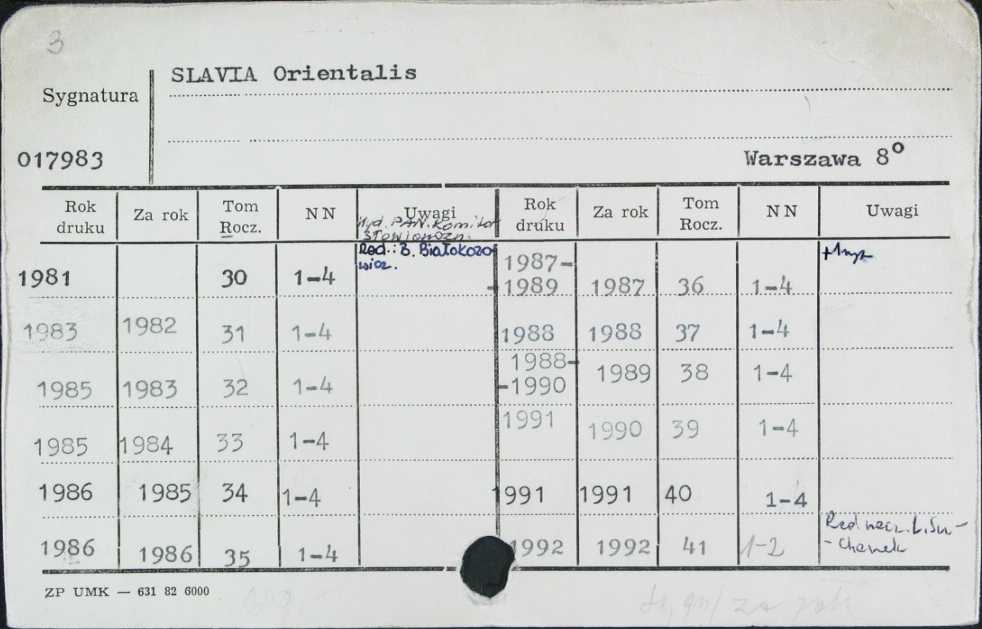 3
SLAVIA Orientalis
Sygnatura
017983
Warszawa 8°
Rok druku Za rok Tom Rocz. NN Uwagi Rok druku Za rok Tom Rocz. NN Uwagi
Wyd. PAN. Komitet
Słowianozn.
Red.: B. Białokozo
wicz.
1981 30 1-4
1983 1982 31 1-4
1985 1983 32 1-4
1985 1984 33 1-4
1986 1985 34 1-4
1986 1986 35 1-4
1987-
-1989 1987 36 1-4
1988 1988 37 1-4
1988-
-1990 1989 38 1-4
1991 1990 39 1-4
1991 1991 40 1-4
1992 1992 41 1-2
Red nacz. L. Su-
-chanek
ZP UMK — 631 82 6000